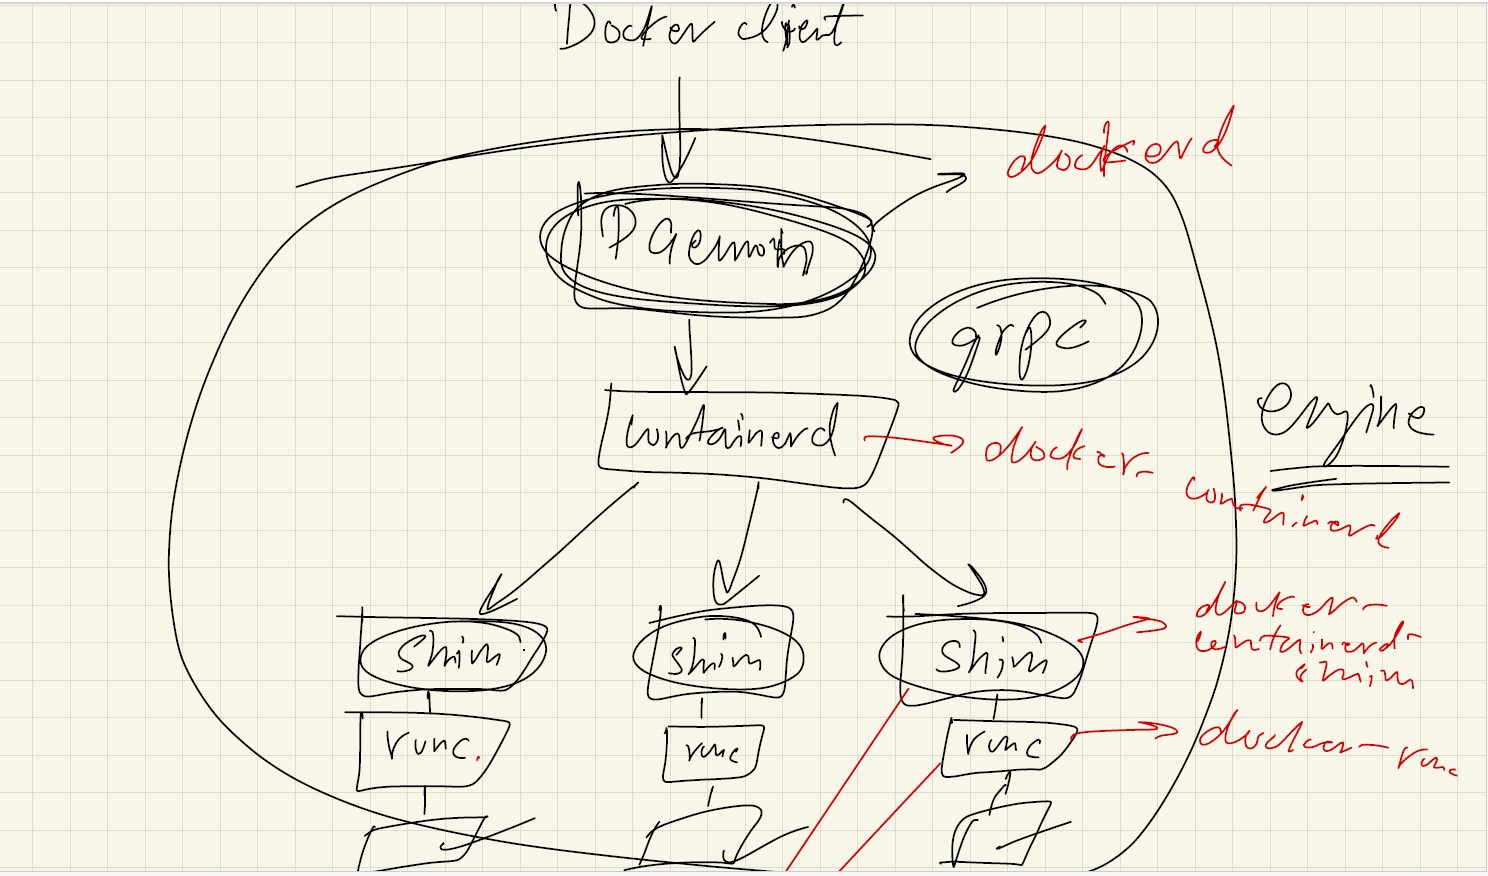 Docker client
dockerd
Daemon
grpc
containerd
docker-
containerd
engine
shim
shim
shim
docker-
containerd-
shim
runc.
runc
runc
docker-runc